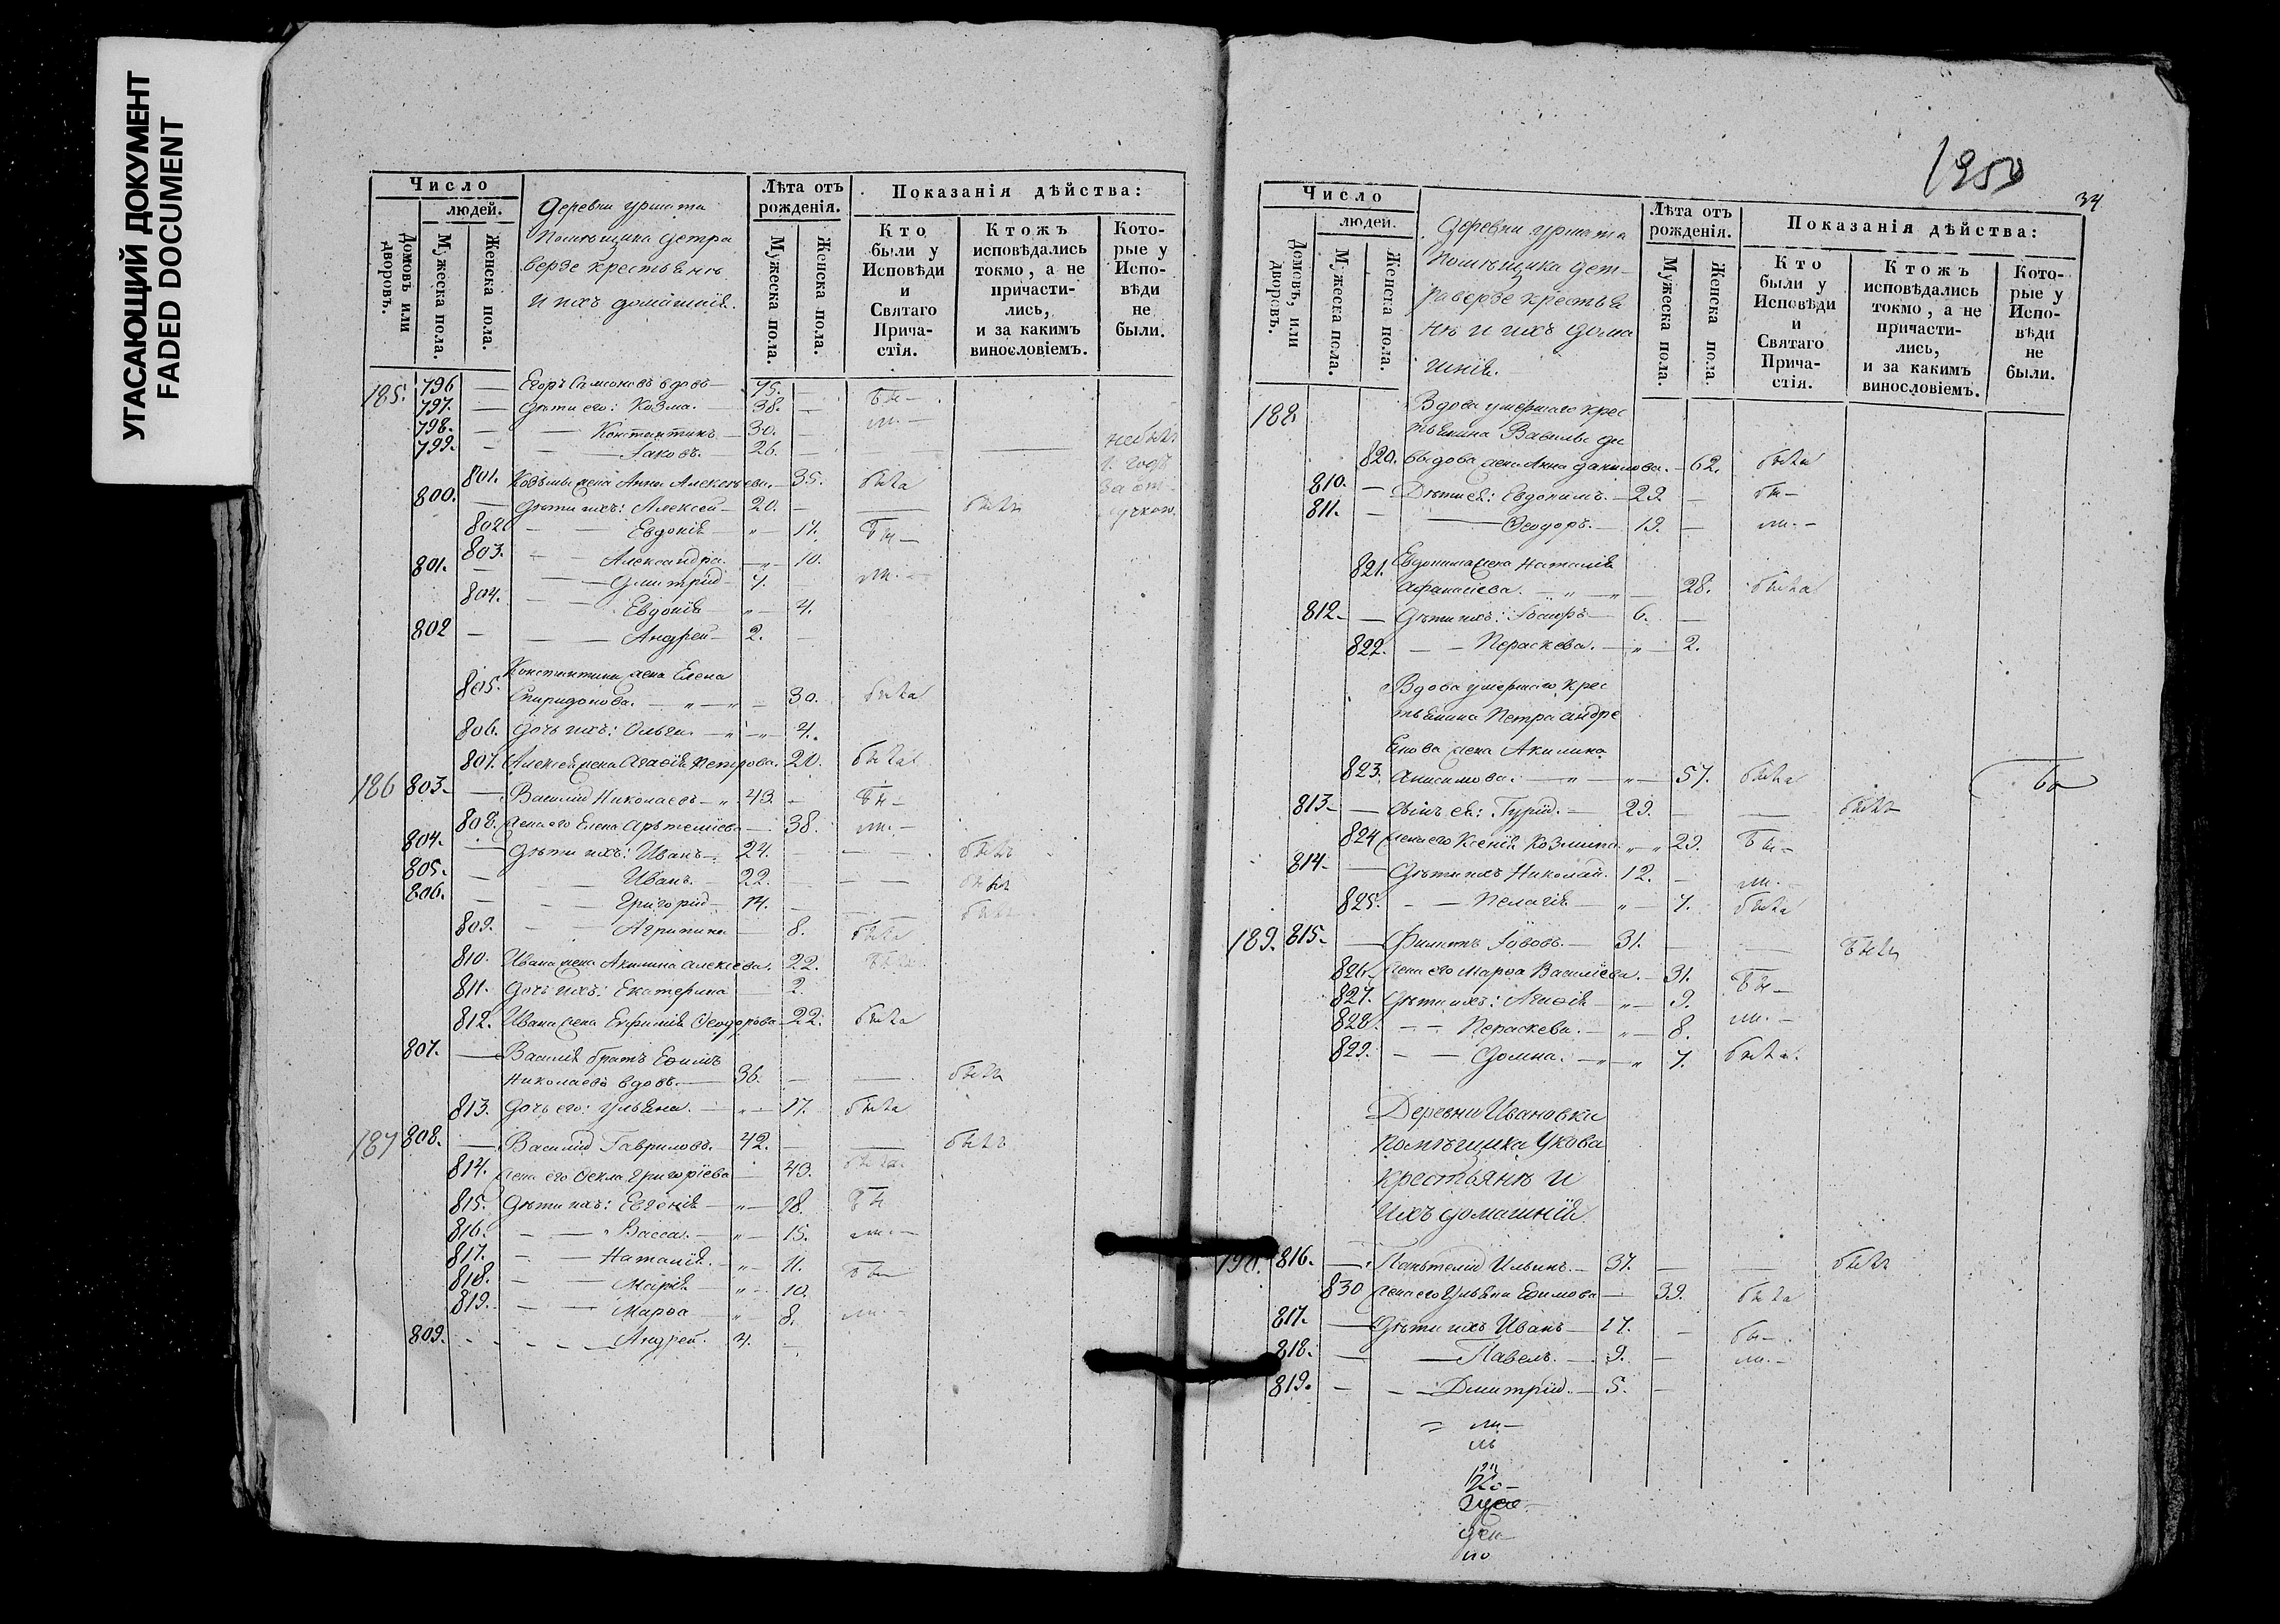 УГАСАЮЩИЙ ДОКУМЕНТ
FADED DOCUMENT
Число
людей.
Домовъ или дворовъ.
Мужеска пола.
Женска пола.
Деревни Уршата
Помѣщика Детра
верзе крестьянъ
и ихъ домашнія.
Лѣта отъ рожденія.
Мужеска пола.
Женска пола.
Показанія дѣйства:
Кто были у Исповѣди и Святаго Причастія.
Ктожъ исповѣдались токмо, а не причастились, и за какимъ винословіемъ.
Которые у Исповѣди не были.
185. 796 — Егоръ Самсоновъ вдовъ — 75. — бы—
797. — Дѣти его: Козма. — 38. — ли.—
798. — Константинъ. — 30. —
799. — Іаковъ. 26. — небылъ
801. Козьмы жена Анна Алексѣева. — 35. была
800. — Дѣти ихъ: Алексей — 20. — былъ
802. Евдокія — „ — 17. бы—
803. Александра. — „ — 10.
801. — Дмитрій — 7. ли.—
804. Евдокія „ — 4.
802 — Андрей — 2. —
805. Константина жена Елена
Спиридонова. — „ — „ — 30. была
806. Дочь ихъ: Ольга. — „ — „ — 4.
807. Алексея жена Агаѳія Петрова. 20. была
186 803. — Василій Николаевъ — „ 43. — бы—
808. Жена его Елена Артемиева — 38. ли.—
804. — Дѣти ихъ: Иванъ — 24. — — былъ
805. — Иванъ. — 22. — — былъ
806. — Григорій — 14. — — былъ
809. — Агрипина — 8. была
810. Ивана жена Акилина Алексіева. 22. была
811. Дочь ихъ: Екатерина — 2.
812. Ивана жена Евфимія Ѳеодорова — 22. была
807. — Василія братъ Евѳимъ
Николаевъ вдовъ. — 36. — — былъ
813. Дочь его: Ульяна. — „ — 17. была
187 808. — Василій Гавриловъ. — 42. — — былъ
814. Жена его Ѳекла Григоріева — 43. была
815. Дѣти ихъ: Евгенія — „ — 18. бы
816. — — Васса. — „ — 15. ли.—
817. — — Наталія. — „ — 11.
818. — — Марія — „ — 10. бы—
819. — — Марѳа — „ — 8. ли.—
809. — — Андрей. 4. —
1850
34
Число
людей.
Домовъ, или дворовъ.
Мужеска пола.
Женска пола.
Деревни Уршата
Помѣщика Дет-
раверзе крестья
нъ и ихъ дома
шнія.
Лѣта отъ рожденія.
Мужеска пола.
Женска пола.
Показанія дѣйства:
Кто были у Исповѣди и Святаго Причастія.
Ктожъ исповѣдались токмо, а не причастились, и за какимъ винословіемъ.
Которые у Исповѣди не были.
188. Вдова умершаго крес
тьянина Василья Да
820. выдова жена Анна Данилова. — 62. была
810. — Дѣти ея: Евдокимъ. — 29. — бы—
811. — Ѳеодоръ. — 19. — ли.—
821. Евдокима жена Наталія
Афанасіева. — „ — „ — 28. была
812. — Дѣти ихъ: Іосифъ — 6. —
822. — — Параскева. — „ — 2.
Вдова умершаго крес
тьянина Петра Андре
янова жена Акилина
823. Анисимова. — „ — „ — 57. была
813. — Сынъ ея: Гурій. — 29. — — былъ
824 Жена его Ксенія Козмина. „ „ 29. бы—
814. — Дѣти ихъ Николай. 12. — ли.—
825. — — Пелагія — „ — 7. была
189. 815. — Филипъ Іововъ. — 31. — — былъ
826. Жена его Марѳа Василіева. — 31. бы—
827. Дѣти ихъ: Агаѳія — „ — 9.
828. — — Параскева. — „ — 8. ли.—
829. — — Домна. — „ — „ 7. была.
Деревни Ивановки
Помѣщика Укова
крестьянъ и
ихъ домашнія.
190. 816. — Пантелій Ильинъ. — 37. — — былъ
830 Жена его Ульяна Евѳимова — 39. была
817. — Дѣти ихъ Иванъ — 17. — бы—
818. — Павелъ. — 9. — ли.—
819. — Дмитрій. — 5. —